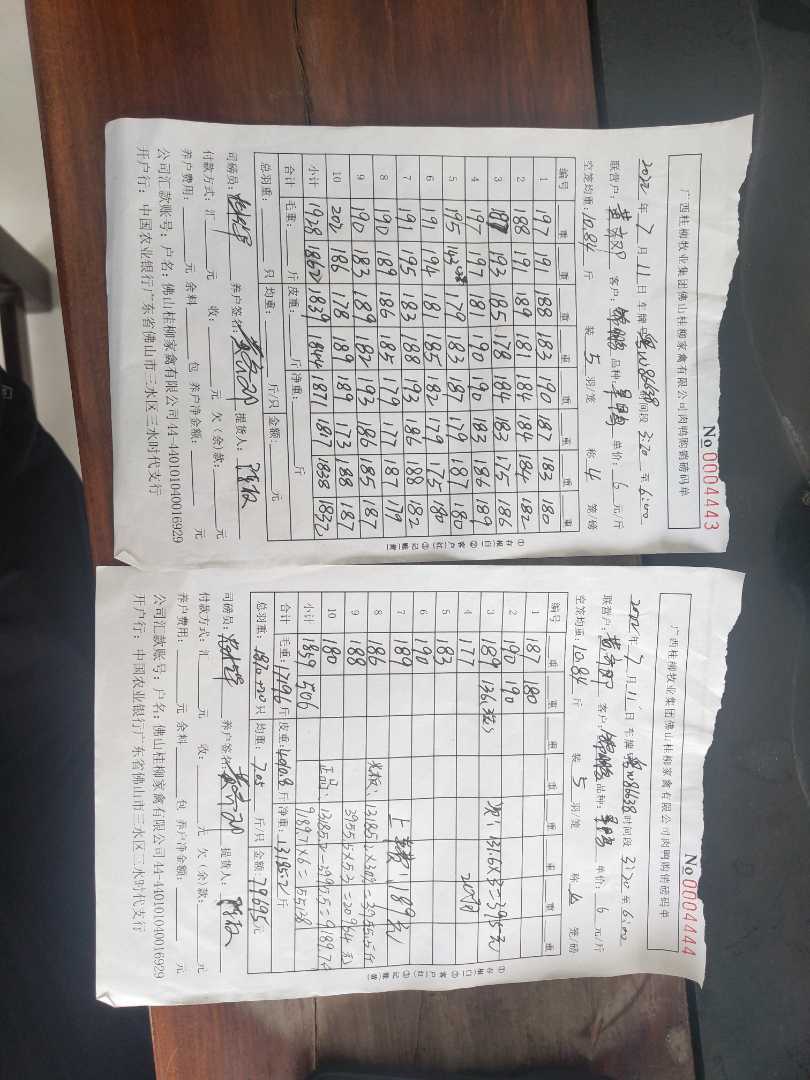 广西桂柳牧业集团佛山桂柳家禽有限公司肉鸭购销磅码单
№0004443
2022年7月11日 车牌号 粤W86638 时间段 3:20 至 6:00
联营户: 客户: 品种: 单价: 6 元/斤
空笼均重: 10.84 斤 装 5 羽/笼 称 4 笼/磅
编号 重 重 重 重 重 重 重 重
1 197 191 188 183 190 187 183 180
2 188 191 189 181 184 184 184 182
3 187 193 185 178 184 183 175 186
4 197 197 181 190 190 183 186 189
5 195 179 183 187 179 187 180
6 191 194 181 185 182 179 175 180
7 191 195 183 188 193 186 188 182
8 190 189 186 185 179 177 187 179
9 190 183 189 182 193 186 185 187
10 202 186 178 189 189 173 188 187
小计 1928 1862 1839 1844 1871 1817 1838 1832
合计 毛重: 斤 皮重: 斤 净重: 斤
总羽重: 只 均重: 斤/只 金额: 元
司磅员: 养户签名: 提货人:
付款方式: 汇 元 收: 元 欠(余)款: 元
养户费用: 元 余料 包 养户净金额: 元
公司汇款账号: 户名: 佛山桂柳家禽有限公司 44-440101040016929
开户行: 中国农业银行广东省佛山市三水区三水时代支行
①存根(白) ②客户(红) ③记账(黄)
广西桂柳牧业集团佛山桂柳家禽有限公司肉鸭购销磅码单
№0004444
2022年7月11日 车牌号 粤W86638 时间段 3:20 至 6:00
联营户: 客户: 品种: 单价: 6 元/斤
空笼均重: 10.84 斤 装 5 羽/笼 称 4 笼/磅
编号 重 重 重 重 重 重 重 重
1 187 180
2 190 190
3 189 136 1316×3=3948元
4 177 20只
5 183
6 190
7 189
8 186
9 188
10 180
小计 1859 506
合计 毛重: 17196 斤 皮重: 4010.8 斤 净重: 13185.2 斤
总羽重: 1870+20 只 均重: 7.05 斤/只 金额: 79695 元
司磅员: 养户签名: 提货人:
付款方式: 汇 元 收: 元 欠(余)款: 元
养户费用: 元 余料 包 养户净金额: 元
公司汇款账号: 户名: 佛山桂柳家禽有限公司 44-440101040016929
开户行: 中国农业银行广东省佛山市三水区三水时代支行
①存根(白) ②客户(红) ③记账(黄)